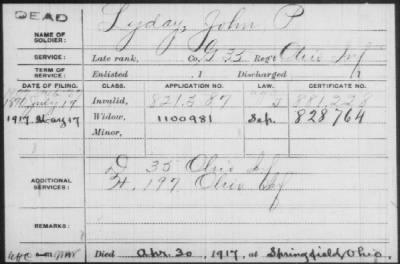 DEAD
NAME OF SOLDIER: Lyday, John P
SERVICE: Late rank, Co. G 35 Reg't Ohio Inf
TERM OF SERVICE: Enlisted , 1 Discharged , 1
DATE OF FILING. CLASS. APPLICATION NO. LAW. CERTIFICATE NO.
1891 July 19 Invalid, 821387 881,228
1917. May 17 Widow, 1100981 Sep. 828764
Minor,
ADDITIONAL SERVICES: D 35 Ohio Inf
H. 197 Ohio Inf
REMARKS:
Died Apr. 30, 1917, at Springfield, Ohio.